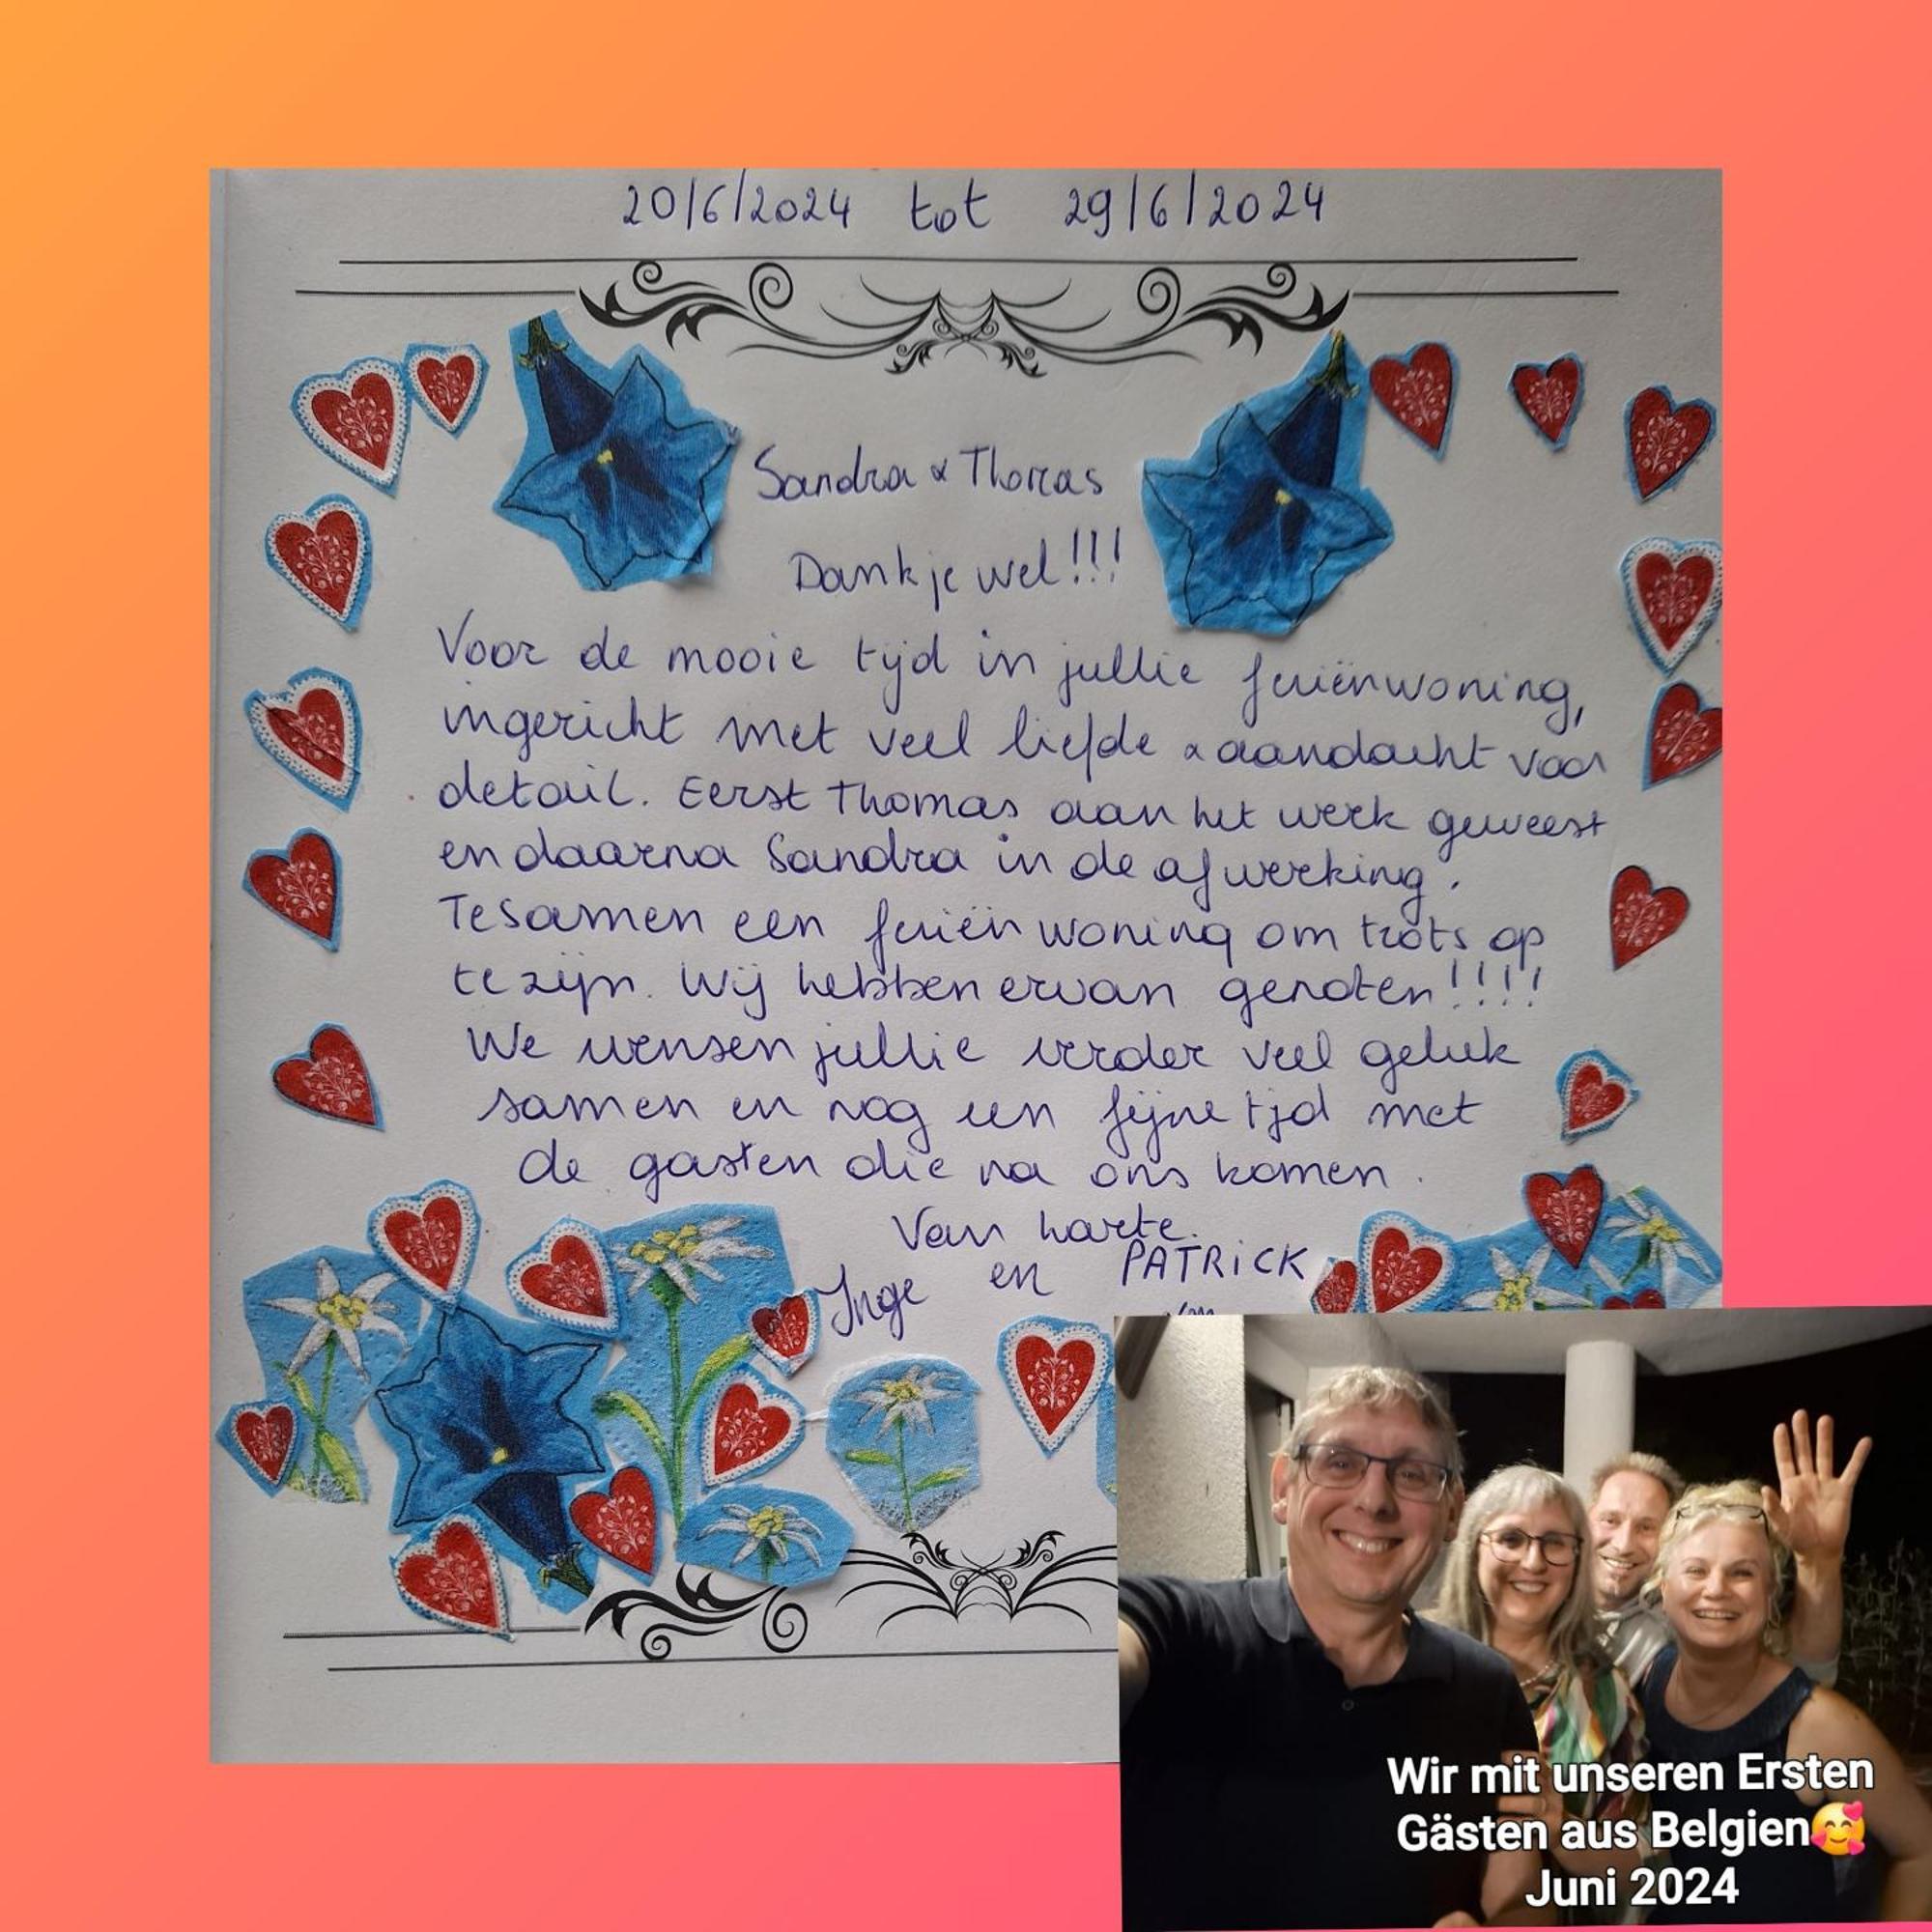 20/6/2024 tot 29/6/2024
Sandra & Thomas
Dank je wel!!!
Voor de mooie tijd in jullie feriënwoning,
ingericht met veel liefde & aandacht voor
detail. Eerst Thomas aan het werk geweest
en daarna Sandra in de afwerking.
Tesamen een feriënwoning om trots op
te zijn. Wij hebben ervan genoten!!!!
We wensen jullie verder veel geluk
samen en nog een fijne tijd met
de gasten die na ons komen.
Van harte.
Inge en PATRiCK
Wir mit unseren Ersten
Gästen aus Belgien🥰
Juni 2024